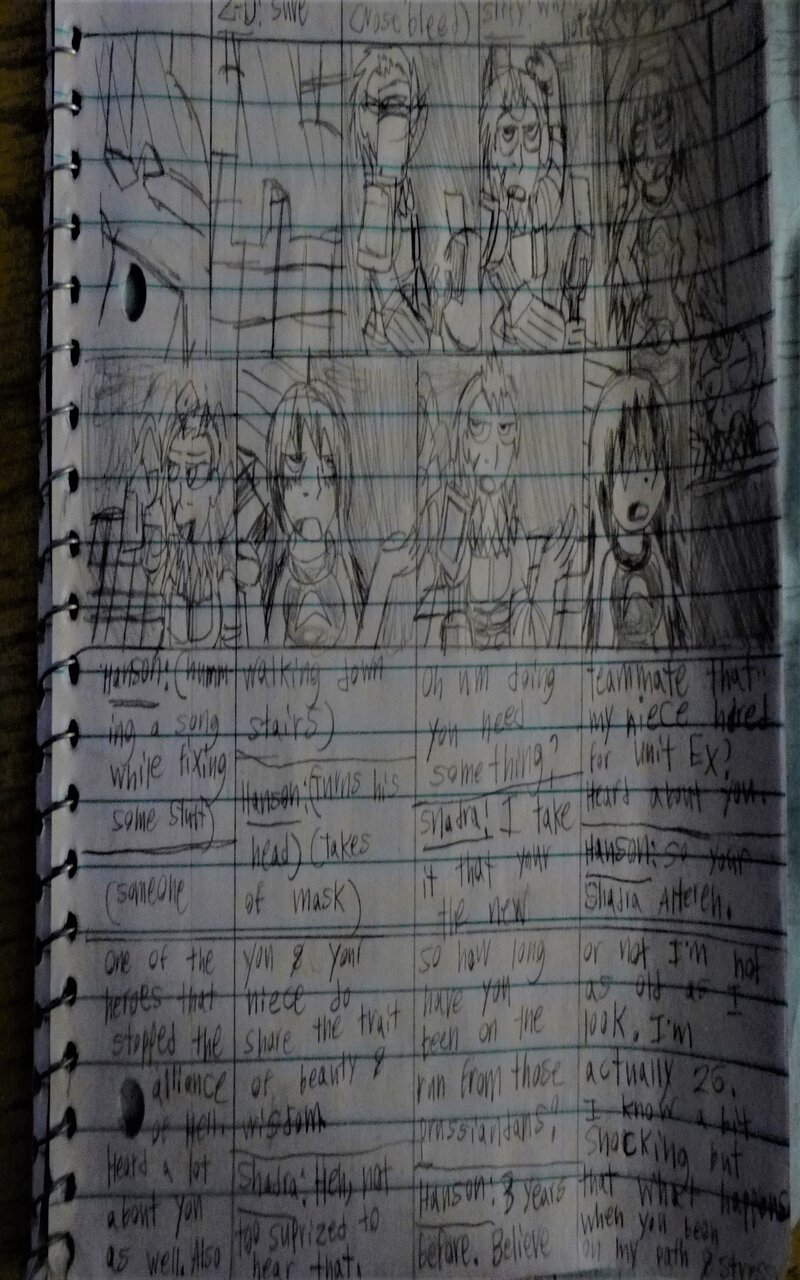 (nose bleed)
Hanson: (humm
ing a song
while fixing
some stuff)
(someone
walking down
stairs)
Hanson: (turns his
head) (takes
of mask)
Oh um doing
you need
something?
Shadra: I take
it that your
the new
teammate that
my niece hored
for Unit Ex?
Heard about you.
Hanson: so your
Shadra
One of the
heroes that
stopped the
alliance
of Hell.
Heard a lot
about you
as well. Also
you & your
niece do
share the trait
of beauty &
wisdom.
Shadra: Heh, not
too suprized to
hear that.
so how long
have you
been on the
run from those
Hanson: 3 years
before. Believe
or not I'm not
as old as I
look. I'm
actually 26.
I know a bit
shocking but
that what happens
when you been
on my path & stress